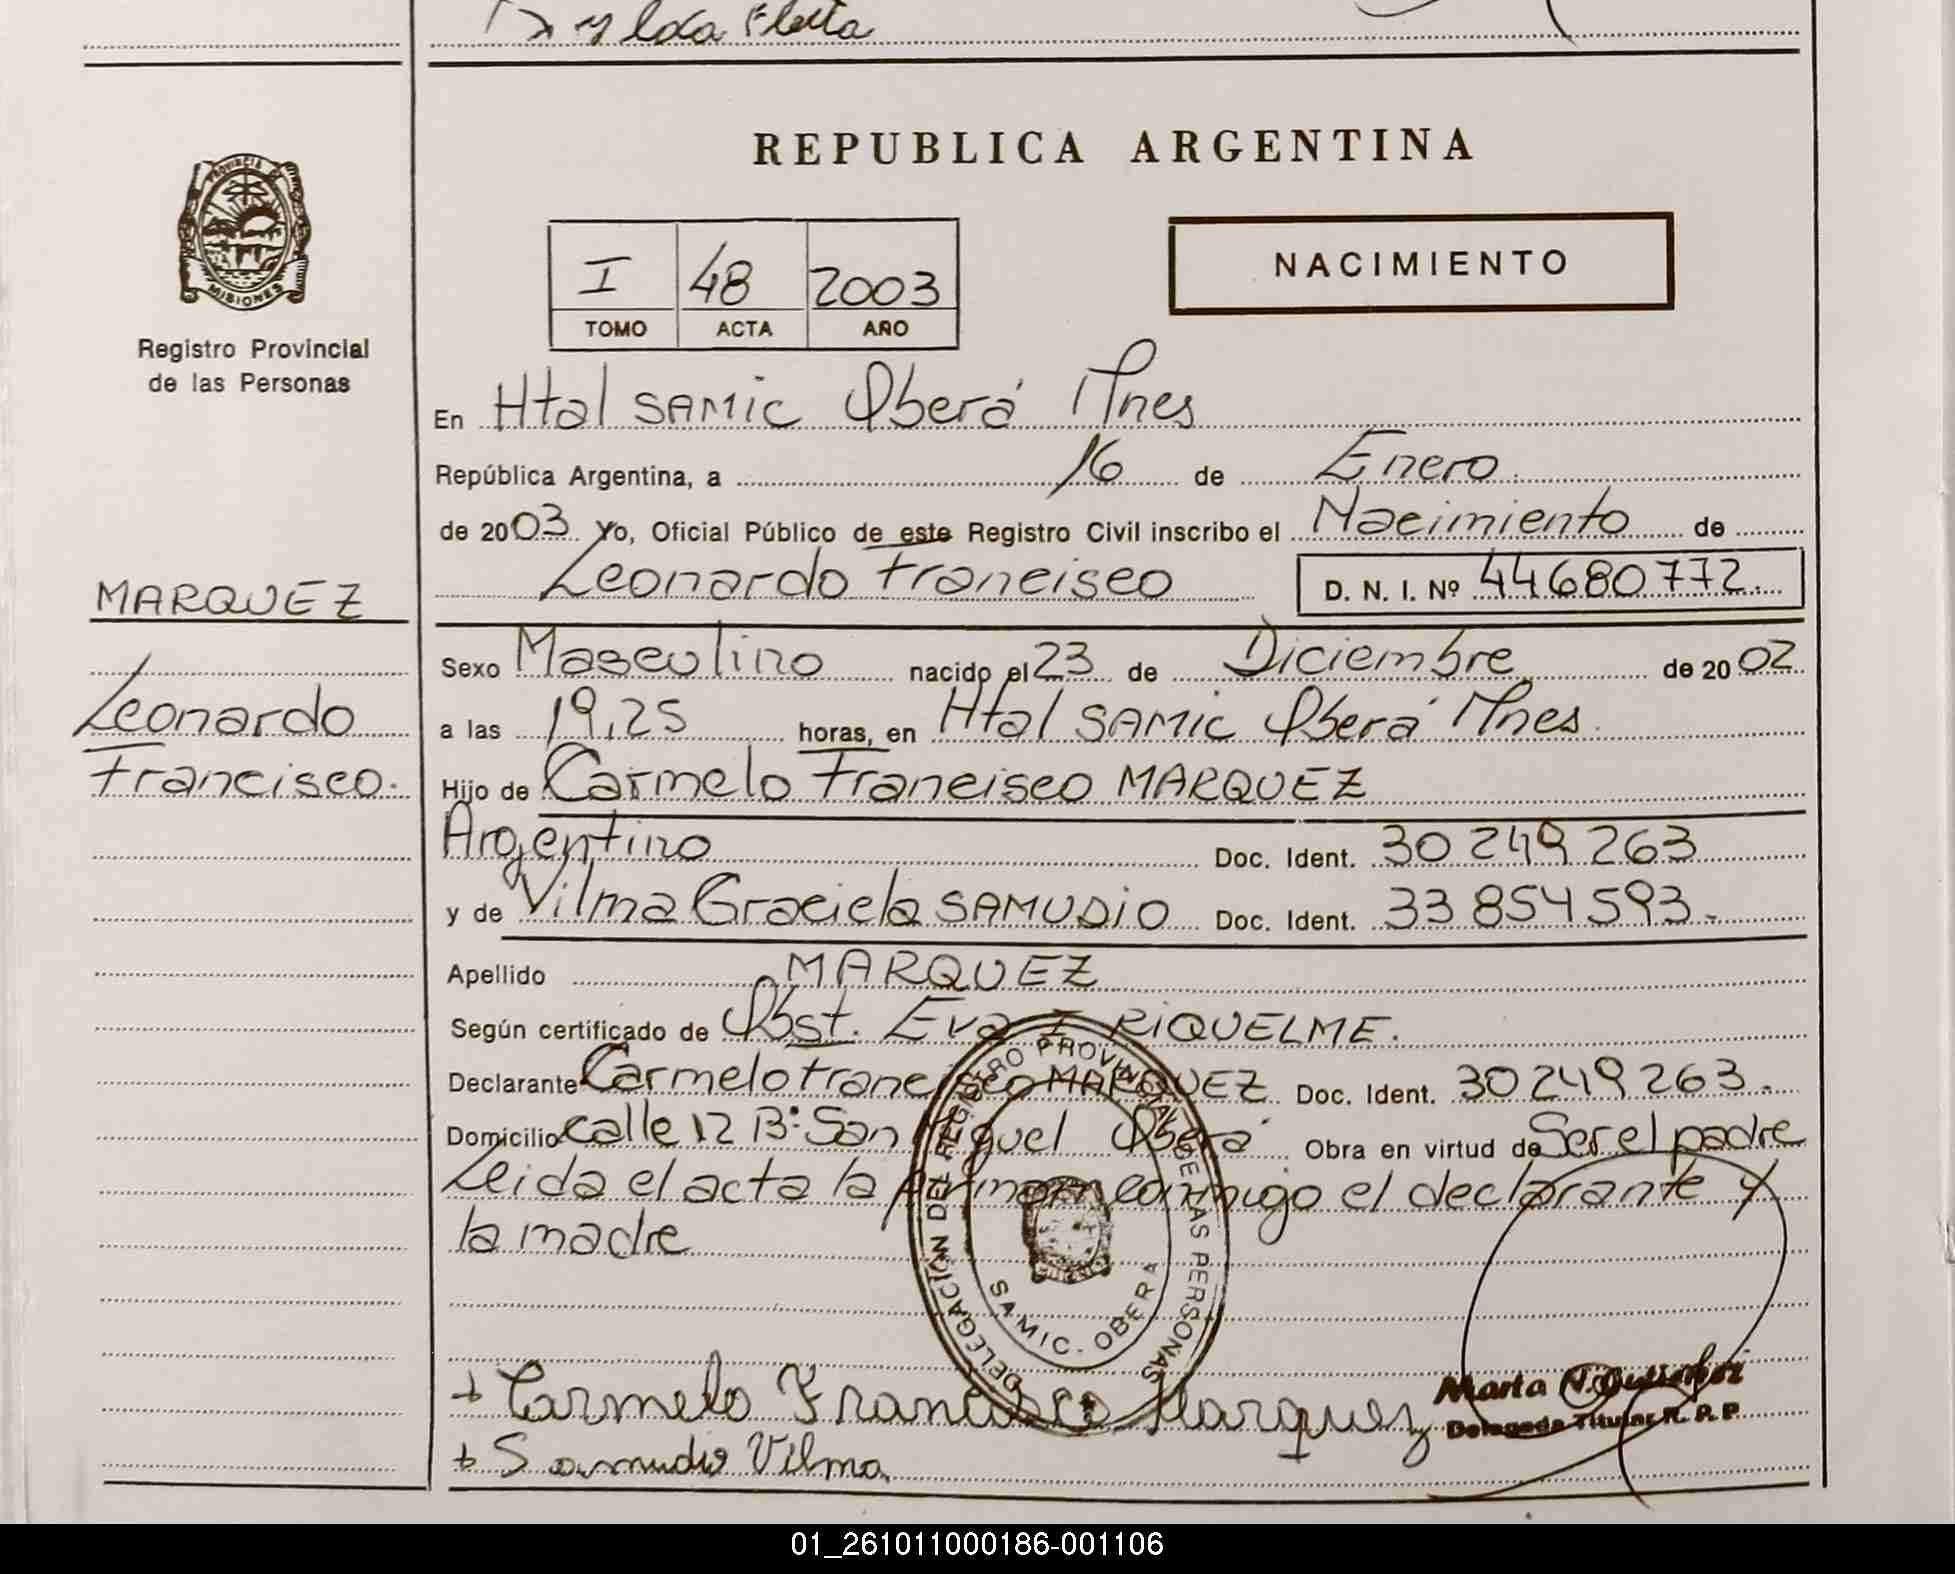 PROVINCIA DE
MISIONES
Registro Provincial
de las Personas
MARQUEZ
Leonardo
Francisco.
REPUBLICA ARGENTINA
I 48 2003
TOMO ACTA AÑO
NACIMIENTO
En Htal SAMIC Oberá Mnes
República Argentina, a 16 de Enero
de 2003 Yo, Oficial Público de este Registro Civil inscribo el Nacimiento de
Leonardo Francisco D. N. I. Nº 44680772.
Sexo Masculino nacido el 23 de Diciembre de 2002
a las 19,25 horas, en Htal SAMIC Oberá Mnes.
Hijo de Carmelo Francisco MARQUEZ
Argentino Doc. Ident. 30 249 263
y de Vilma Graciela SAMUDIO Doc. Ident. 33 854 593.-
Apellido MARQUEZ
Según certificado de Obst. Eva I RIQUELME.
Declarante Carmelo Francisco MARQUEZ Doc. Ident. 30 249 263.-
Domicilio calle 12 Bº San Miguel Oberá Obra en virtud de Ser el padre
Leida el acta la firman conmigo el declarante y
la madre
DELEGACION DEL REGISTRO PROVINCIAL DE LAS PERSONAS
SAMIC - OBERA
+ Carmelo Francisco Marquez
+ Samudio Vilma
Marta
Delegada Titular R. P. P.
01_261011000186-001106